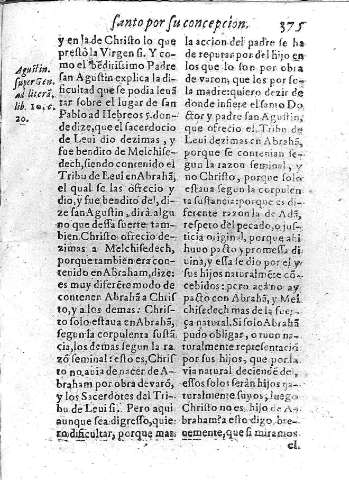 santo por su concepcion. 375
Agustin.
super Gen.
ad literã,
lib. 10. c.
20.
y en la de Christo lo que
prestò la Virgen si. Y co
mo el bẽditissimo Padre
san Agustin explica la di-
ficultad que se podia leuã
tar sobre el lugar de san
Pablo ad Hebreos 7. don-
de dize, que el sacerdocio
de Leui dio dezimas, y
fue bendito de Melchise-
dech, siendo contenido el
Tribu de Leui en Abrahã,
el qual se las ofrecio y
dio, y fue bendito del, di-
ze san Agustin, dirà alguno
que dessa suerte tam-
bien Christo ofrecio de-
zimas a Melchisedech,
porque tambien era con-
tenido en Abraham, dize:
es muy diferẽte modo de
contener Abrahã a Chris
to, y a los demas: Chris-
to solo estaua en Abrahã,
segun la corpulenta sustã
cia, los demas segun la ra
zõ seminal: esto es, Chris
to no auia de nacer de A-
braham por obra de varõ,
y los Sacerdotes del Tri-
bu de Leui si. Pero aqui
aunque sea digresso, quie-
ro dificultar, porque mas
la accion del padre se ha
de reputar por del hijo en
los que lo son por obra
de varon, que los por so-
la madre: quiero dezir de
donde infiere el santo Do
ctor y padre san Agustin,
que ofrecio el Tribu de
Leui dezimas en Abrahã,
porque se contenian se-
gun la razon seminal, y
no Christo, porque solo
estaua segun la corpulen
ta sustancia: porque es di-
ferente razon la de Adã,
respeto del pecado, o jus-
ticia original, porque ahi
huuo pacto y promessa di
uina, y essa se dio por el y
sus hijos naturalmẽte cõ-
cebidos: pero acà no ay
pacto con Abrahã, y Mel
chisedech mas de la fuer-
ça natural. Si solo Abrahã
pudo obligar, o tuuo na-
turalmente representaciõ
por sus hijos, que por la
via natural deciendẽ del,
essos solos seràn hijos na-
turalmente suyos, luego
Christo no es hijo de A-
braham? a esto digo bre-
uemente, que si miramos
el